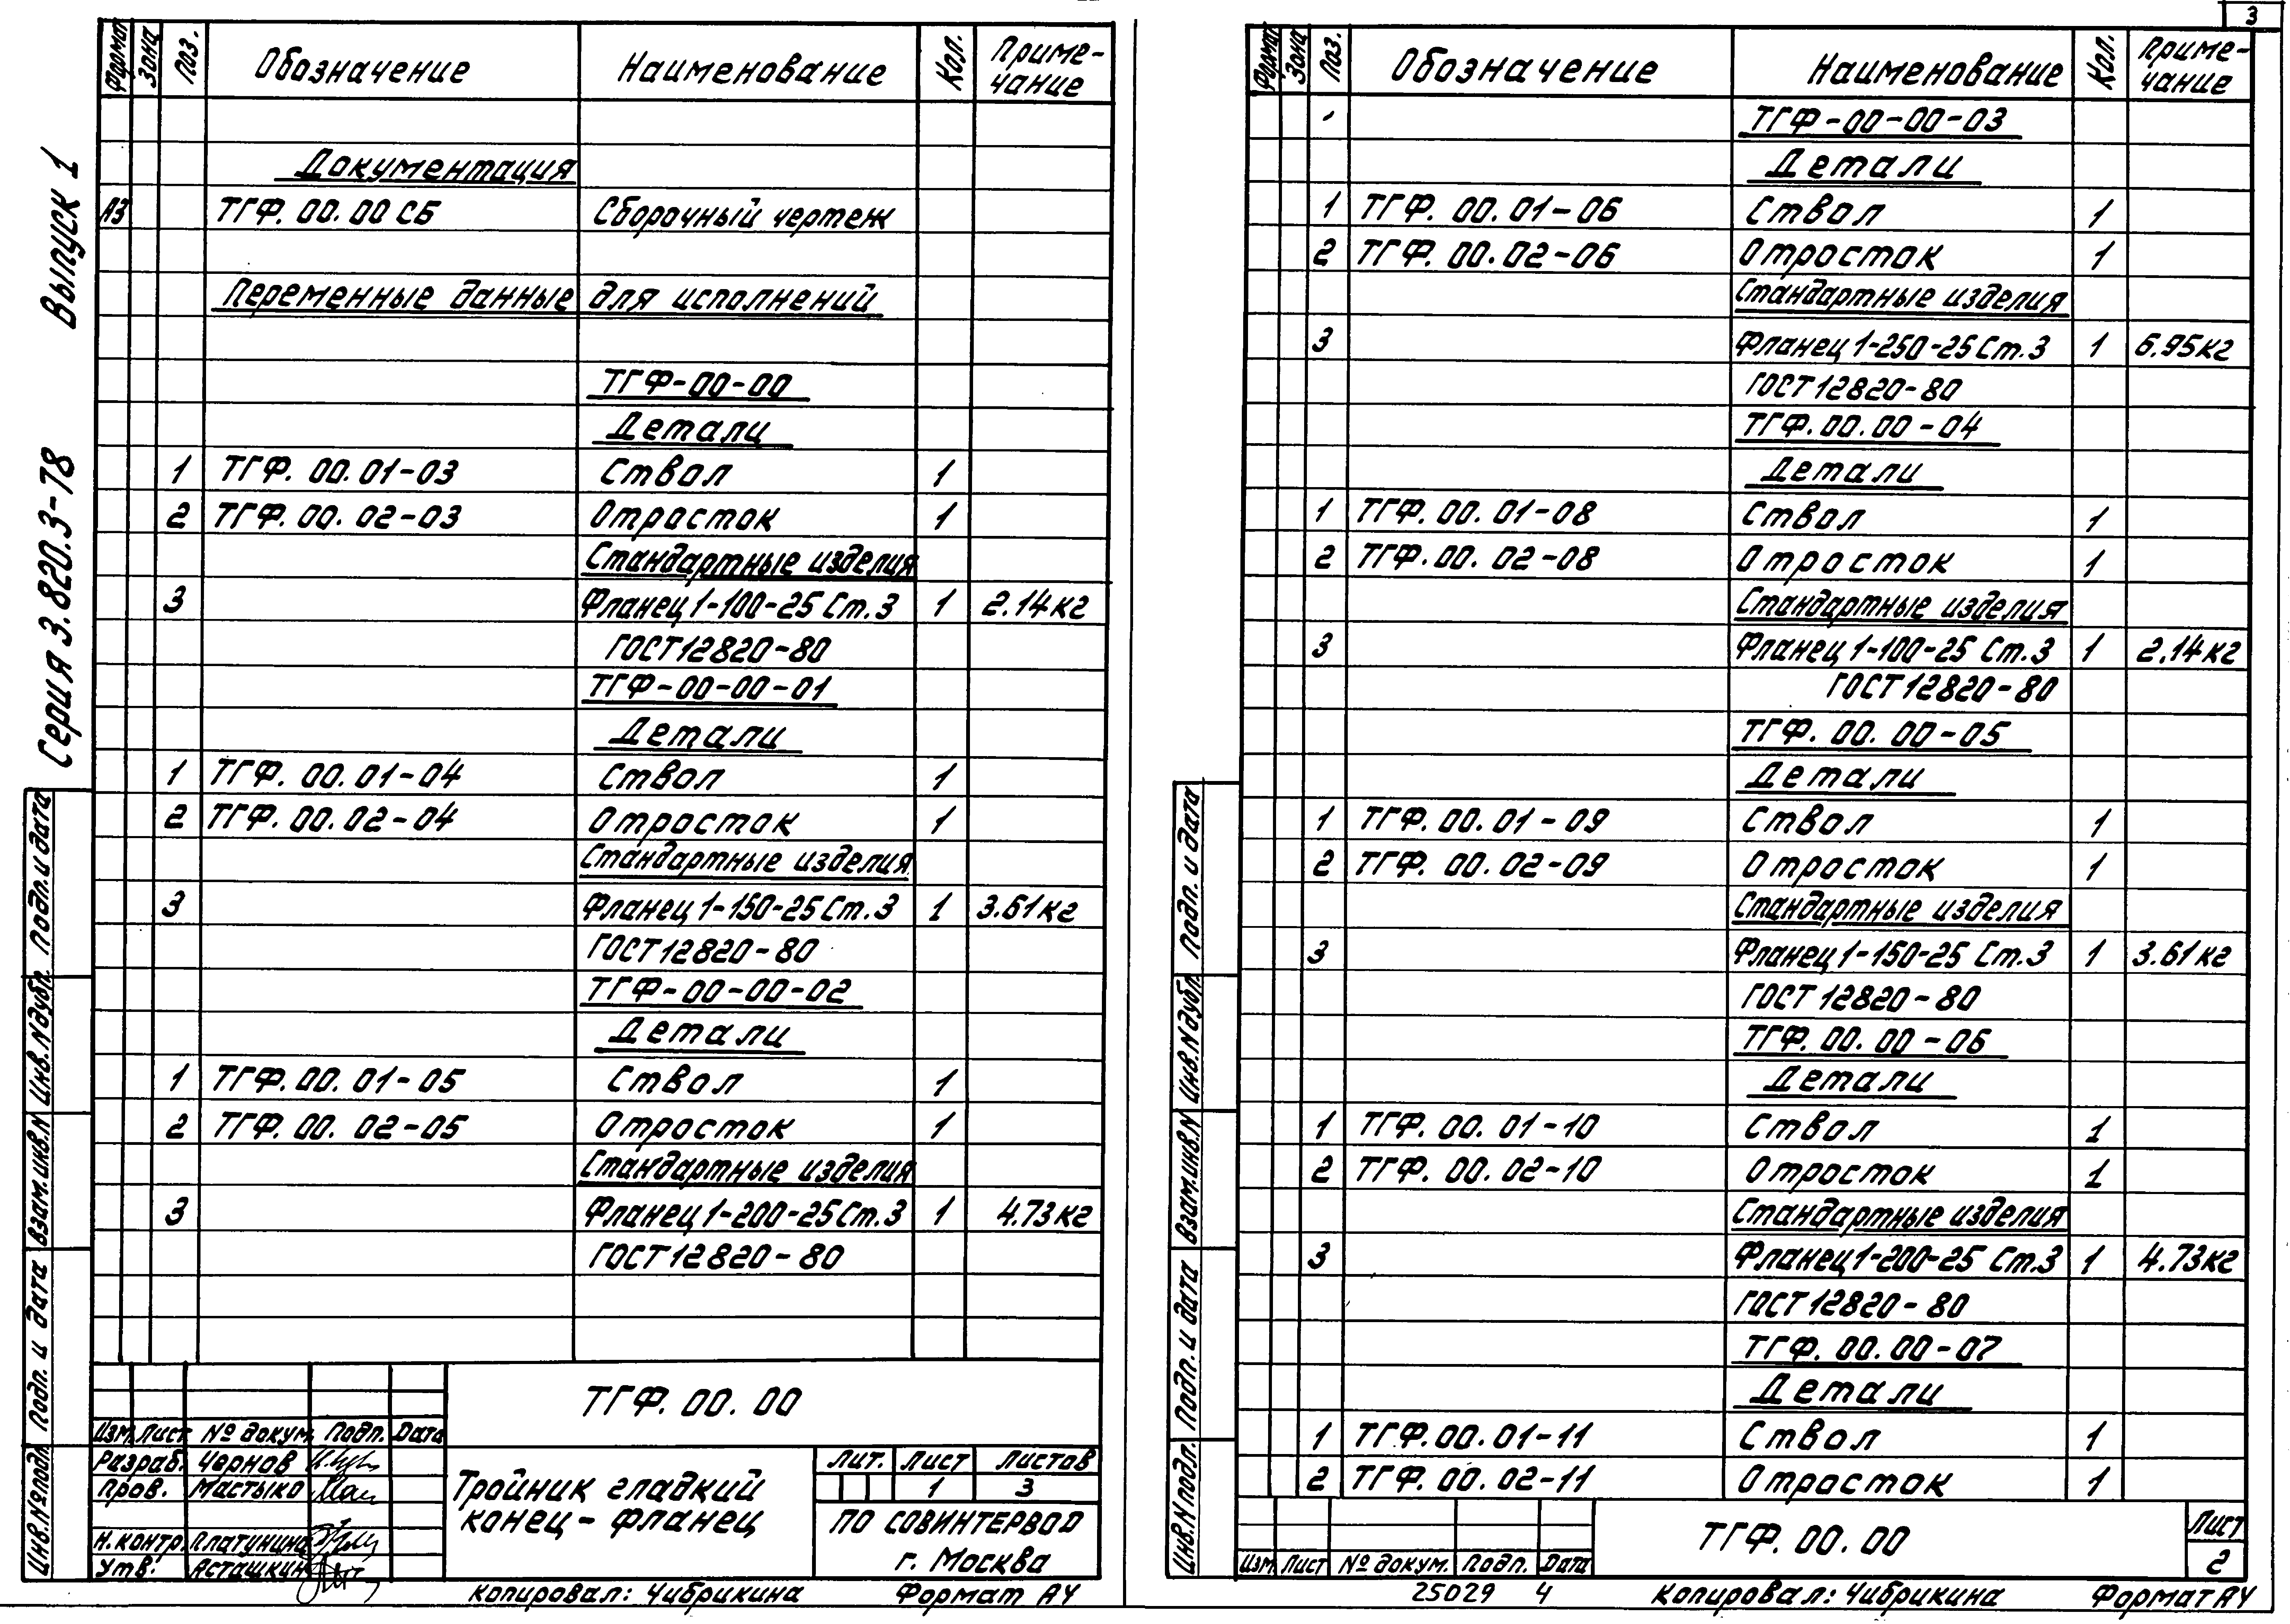 Серия 3.820.3-78 Выпуск 1
Формат Зона Поз. Обозначение Наименование Кол. Приме-
чание
Документация
А3 ТГФ. 00. 00 СБ Сборочный чертеж
Переменные данные для исполнений
ТГФ-00-00
Детали
1 ТГФ. 00. 01-03 Ствол 1
2 ТГФ. 00. 02-03 Отросток 1
Стандартные изделия
3 Фланец 1-100-25 Ст. 3 1 2.14кг
ГОСТ 12820-80
ТГФ-00-00-01
Детали
1 ТГФ. 00. 01-04 Ствол 1
2 ТГФ. 00. 02-04 Отросток 1
Стандартные изделия
3 Фланец 1-150-25 Ст. 3 1 3.61кг
ГОСТ 12820-80
ТГФ-00-00-02
Детали
1 ТГФ. 00. 01-05 Ствол 1
2 ТГФ. 00. 02-05 Отросток 1
Стандартные изделия
3 Фланец 1-200-25 Ст. 3 1 4.73кг
ГОСТ 12820-80
Инв.№подл. Подп. и дата Взам.инв.N Инв.Nдубл. Подп. и дата
ТГФ. 00. 00
Изм. Лист № докум. Подп. Дата
Разраб. Чернов
Пров. Мастыко
Н.контр. Платунина
Утв. Асташкин
Тройник гладкий
конец - фланец
Лит. Лист Листов
1 3
ПО СОВИНТЕРВОД
г. Москва
Копировал: Чибрикина Формат А4
3
Формат Зона Поз. Обозначение Наименование Кол. Приме-
чание
ТГФ-00-00-03
Детали
1 ТГФ. 00. 01-06 Ствол 1
2 ТГФ. 00. 02-06 Отросток 1
Стандартные изделия
3 Фланец 1-250-25 Ст. 3 1 6.95кг
ГОСТ 12820-80
ТГФ. 00. 00-04
Детали
1 ТГФ. 00. 01-08 Ствол 1
2 ТГФ. 00. 02-08 Отросток 1
Стандартные изделия
3 Фланец 1-100-25 Ст. 3 1 2.14кг
ГОСТ 12820-80
ТГФ. 00. 00-05
Детали
1 ТГФ. 00. 01-09 Ствол 1
2 ТГФ. 00. 02-09 Отросток 1
Стандартные изделия
3 Фланец 1-150-25 Ст. 3 1 3.61кг
ГОСТ 12820-80
ТГФ. 00. 00-06
Детали
1 ТГФ. 00. 01-10 Ствол 1
2 ТГФ. 00. 02-10 Отросток 1
Стандартные изделия
3 Фланец 1-200-25 Ст. 3 1 4.73кг
ГОСТ 12820-80
ТГФ. 00. 00-07
Детали
1 ТГФ. 00. 01-11 Ствол 1
2 ТГФ. 00. 02-11 Отросток 1
Инв.N подл. Подп. и дата Взам.инв.N Инв.Nдубл. Подп. и дата
Изм. Лист № докум. Подп. Дата
ТГФ. 00. 00
Лист
2
25029 4 Копировал: Чибрикина Формат А4